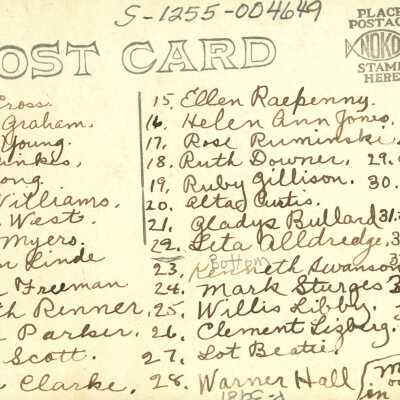 S-1255-004649
OST CARD
PLACE
POSTAG
NOKO
STAMP
HERE
Cross
Graham.
Young.
ong.
Williams.
West.
Myers.
Linde
Freeman
th Renner,
Parker.
Scott.
Clarke.
15. Ellen Raepenny.
16. Helen Ann Jones.
17. Rose Ruminski.
18. Ruth Downer, 29.
19. Ruby Gillison. 30.
20. Alta Curtis.
21. Gladys Bullard 31.
22. Leta Alldredge. 3
Bottom
23. Kenneth Swanson
24. Mark Sturges 3
25. Willis Libby.
26. Clement Lizberg.
27. Lot Beatie.
28. Warner Hall
in